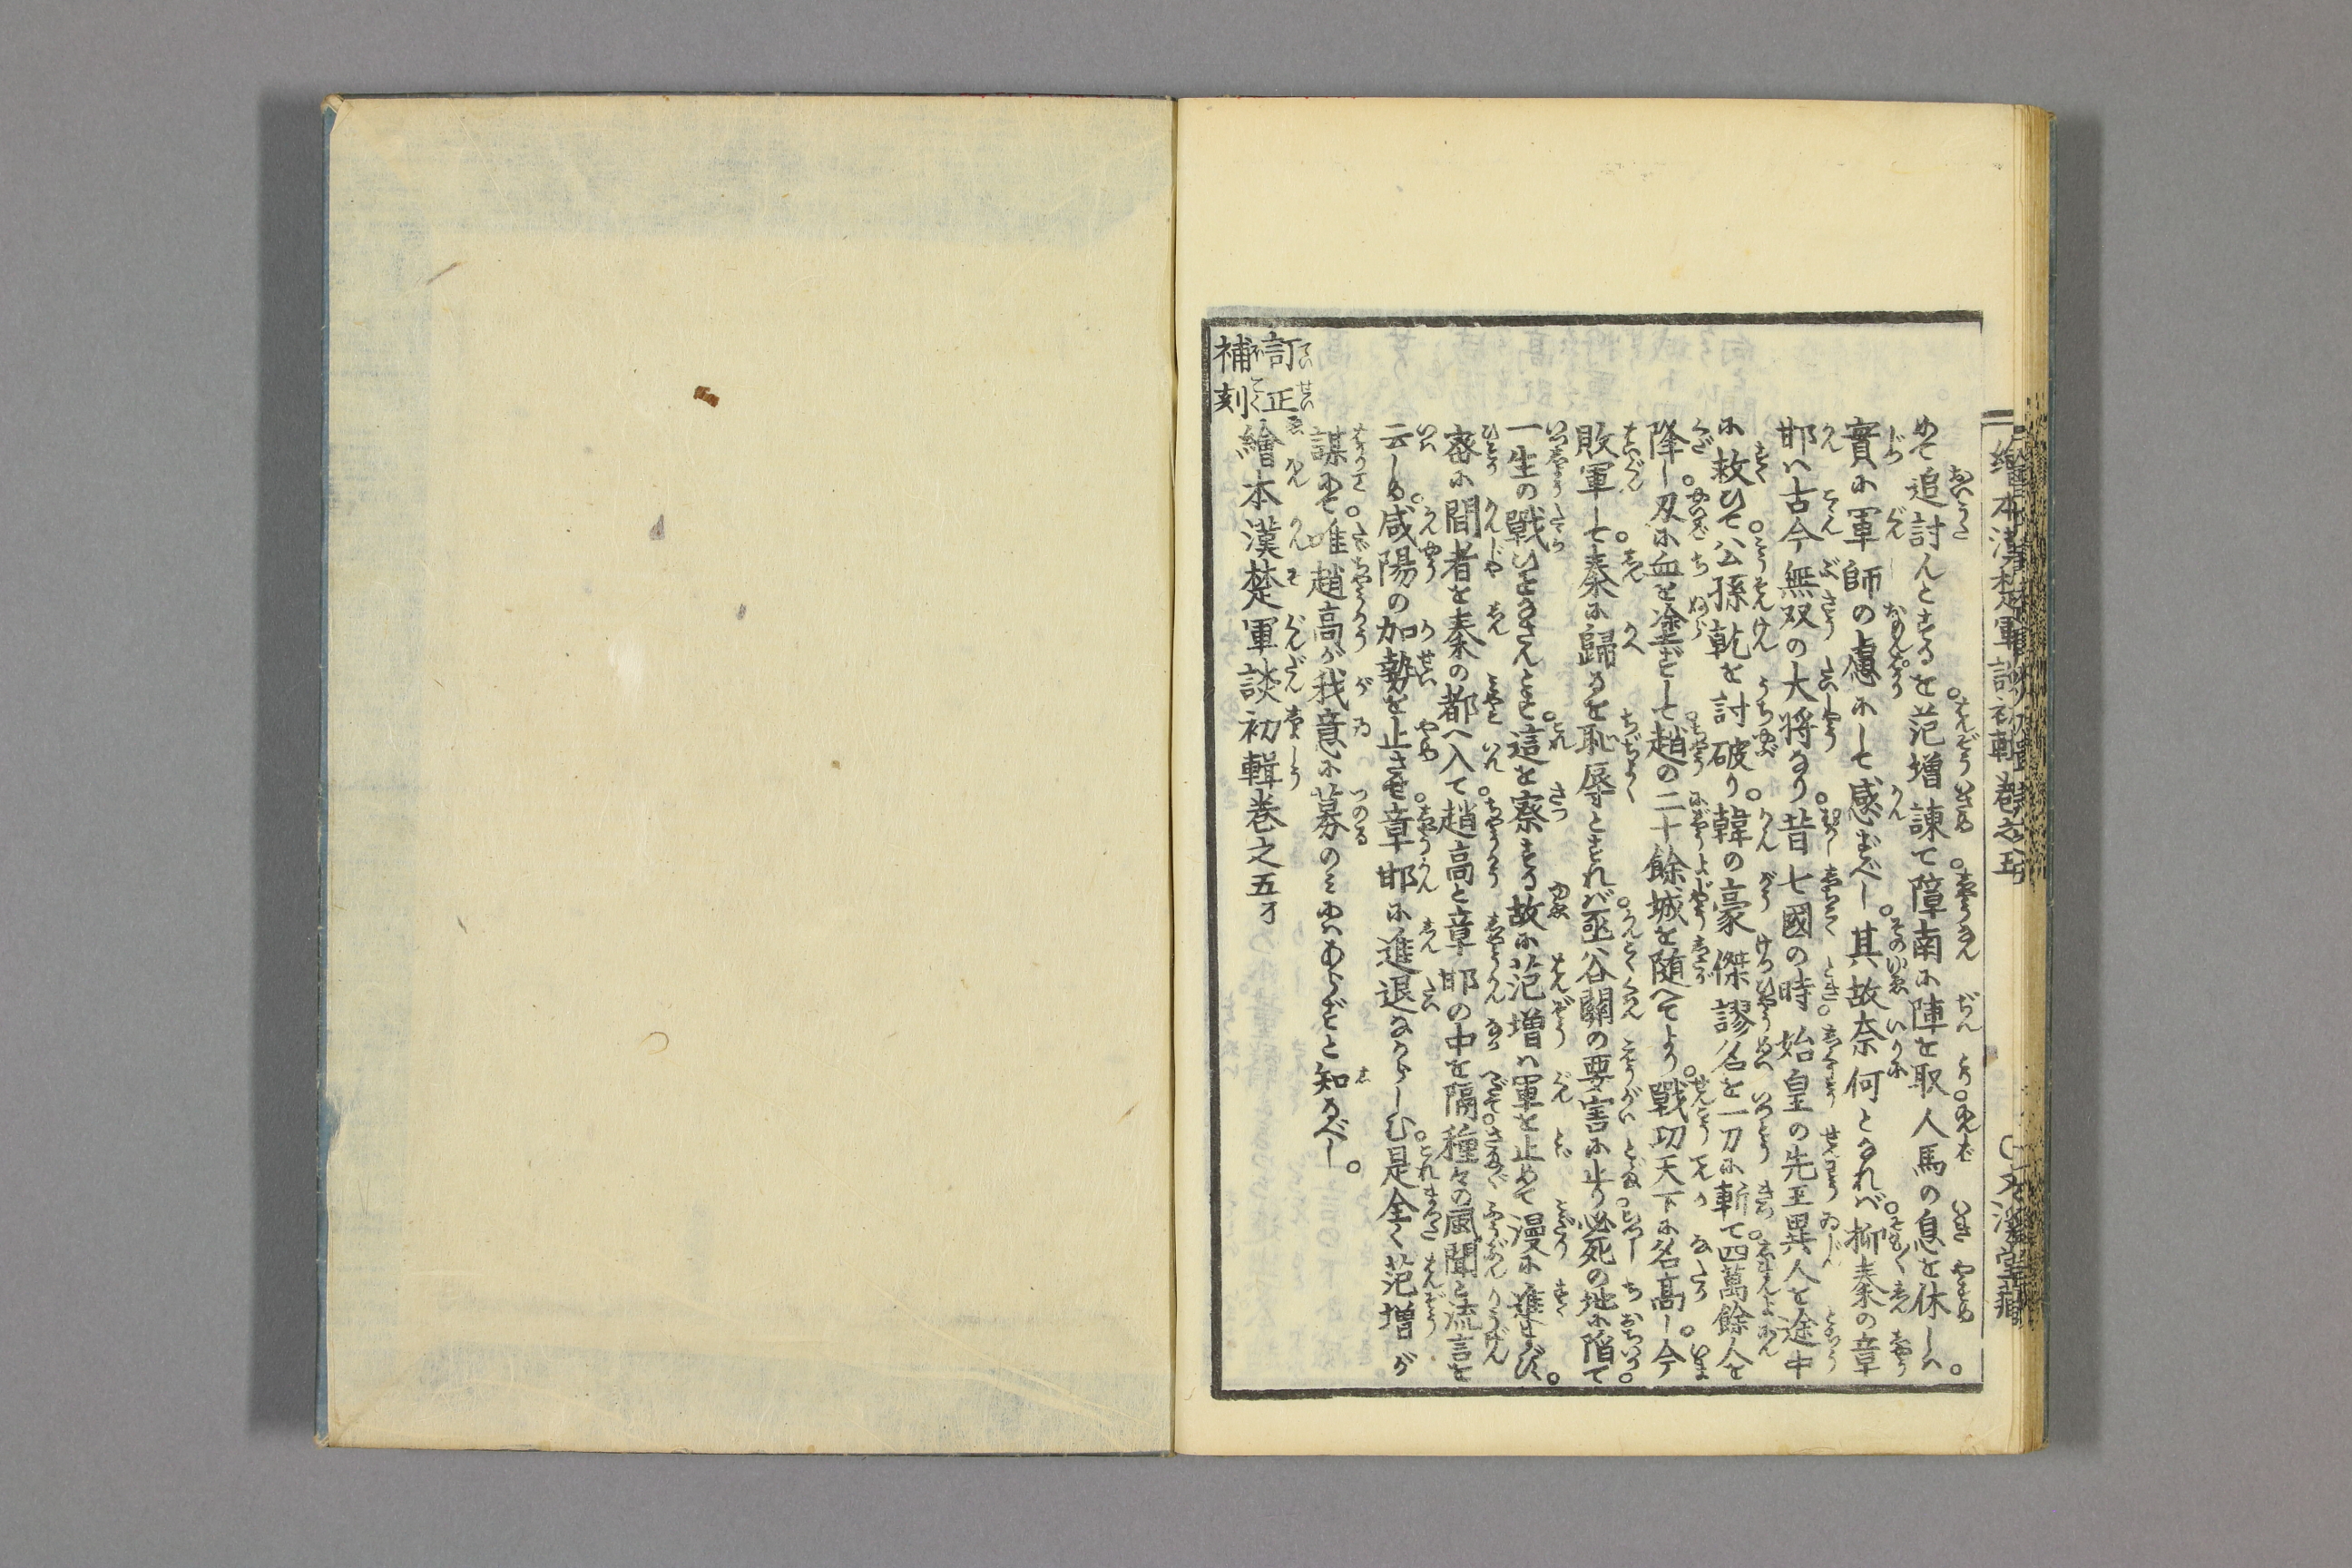 めて追討んとするを范増諫て障南に陣を取人馬の息を休しハ。
實に軍師の慮にして感ずべし。其故奈何となれバ。抑秦の章
邯ハ古今無双の大将なり。昔七國の時。始皇の先王異人を途中
に救ひて。公孫乾を討破り。韓の豪傑謬名を一刀に斬て四萬餘人を
降し。刄に血を塗ずして。趙の二十餘城を随へてより。戰功天下に名高し。今
敗軍して。秦に歸るを恥辱とすれバ。函谷關の要害に止り。必死の地に陥て。
一生の戰ひをなさんとす。這を察する故に范増ハ軍を止めて漫に進まず。
密に間者を秦の都へ入て。趙高と章邯の中を隔。種々の風聞と流言を
云しめ。咸陽の加勢を止させ。章邯に進退なからしむ。是全く范増が
謀にて。唯趙高が我意に募のミにハあらずと知るべし。
訂正
補刻
繪本漢楚軍談初輯巻之五了
繪本漢楚軍談初輯巻之五
文溪堂藏